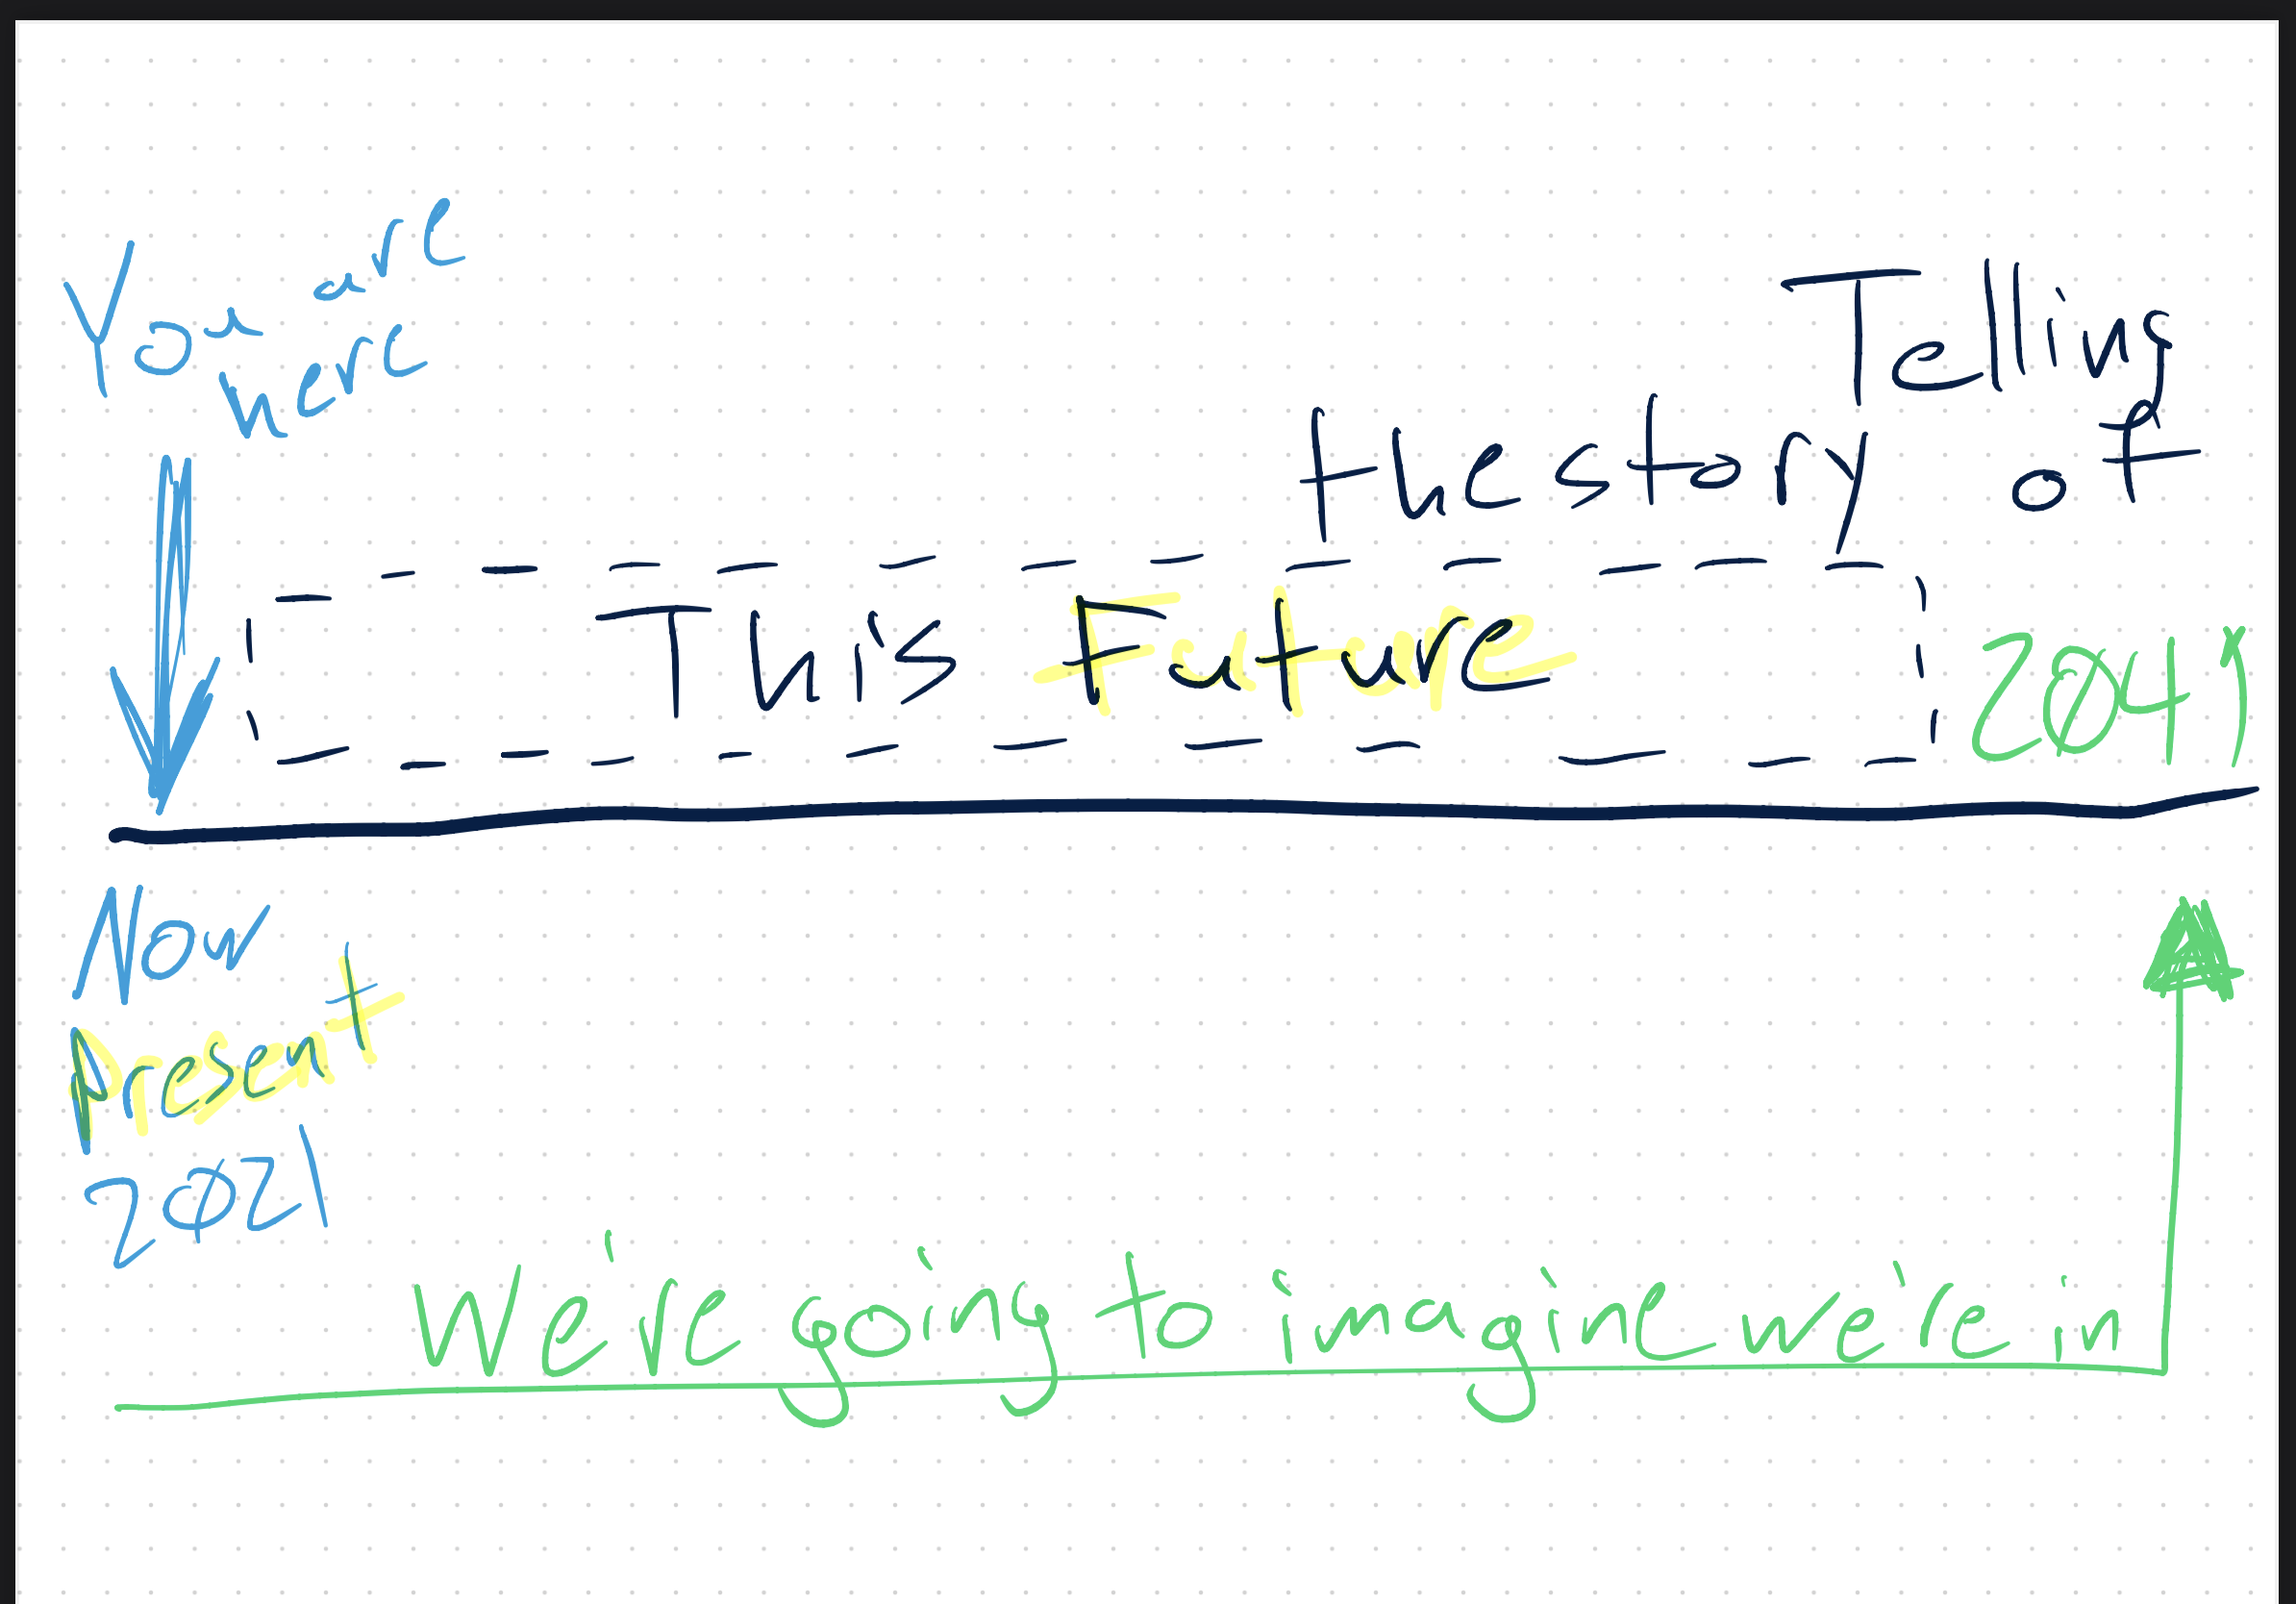 You are
here
Telling
the story of
This Future
2041
Now
Present
2021
We're going to imagine we're in